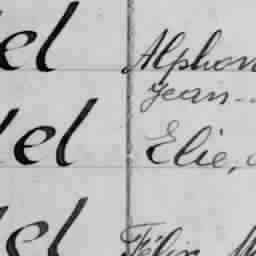 el Alphon
Jean-
el Elie,
el Félix M